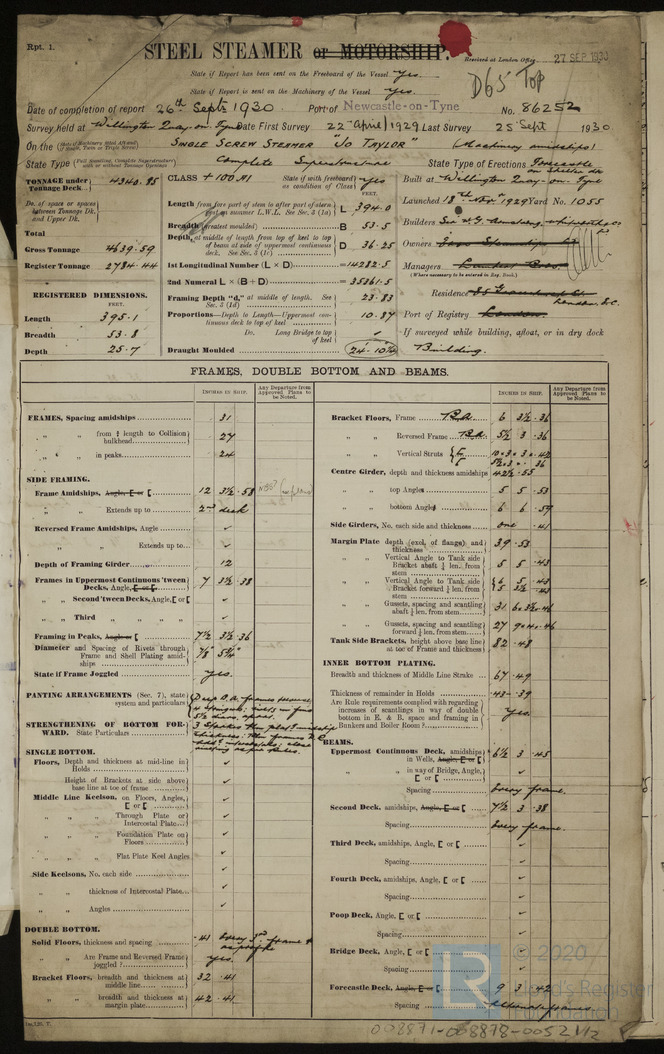 Rpt. 1.
STEEL STEAMER or MOTORSHIP.
Received at London Office 27 SEP 1930
State if Report has been sent on the Freeboard of the Vessel Yes.
State if Report is sent on the Machinery of the Vessel Yes.
D65 TOP
Date of completion of report 26th Sept 1930 Port of Newcastle-on-Tyne No. 86252
Survey held at Wellington Quay-on-Tyne Date First Survey 22nd April 1929 Last Survey 25 Sept 1930.
On the Single Screw Steamer "Jo Taylor" (Machinery amidships)
State Type Complete Superstructure State Type of Erections Forecastle on Shelter dk
TONNAGE under Tonnage Deck 4340.85
Do. of space or spaces between Tonnage Dk. and Upper Dk.
Total
Gross Tonnage 4639.59
Register Tonnage 2784.44
REGISTERED DIMENSIONS.
FEET.
Length 395.1
Breadth 53.8
Depth 25.7
CLASS +100A1 State if with freeboard as condition of Class Yes
FEET.
Length from fore part of stem to after part of stern post on summer L.W.L. See Sec. 3 (1a) L 394.0
Breadth (greatest moulded) B 53.5
Depth, at middle of length from top of keel to top of beam at side of uppermost continuous deck. See Sec. 3 (1c) D 36.25
1st Longitudinal Number (L × D) =14282.5
2nd Numeral L × (B + D) =35361.5
Framing Depth "d," at middle of length. See Sec. 3 (1d) 23.83
Proportions—Depth to Length—Uppermost continuous deck to top of keel 10.87
Do. Long Bridge to top of keel ✓
Draught Moulded 24'-10¼
Built at Wellington Quay-on-Tyne
Launched 18th Nov 1929 Yard No. 1055
Builders Sir W.G. Armstrong, Whitworth & Co
Owners
Managers
(Where necessary to be entered in Reg. Book.)
Residence London E.C.
Port of Registry London.
If surveyed while building, afloat, or in dry dock
Building.
FRAMES, DOUBLE BOTTOM AND BEAMS.
INCHES IN SHIP. Any Departure from Approved Plans to be Noted.
FRAMES, Spacing amidships 31
" " from ⅗ length to Collision bulkhead 27
" " in peaks 24
SIDE FRAMING.
Frame Amidships, Angle, E or [ 12 3½ .58
" " Extends up to 2nd deck
Reversed Frame Amidships, Angle ✓
" " Extends up to ✓
Depth of Framing Girder 12
Frames in Uppermost Continuous 'tween Decks, Angle, E or [ 7 3½ .38
" " Second 'tween Decks, Angle, E or [ ✓
" " Third " " " " ✓
Framing in Peaks, Angle or [ 7½ 3½ .36
Diameter and Spacing of Rivets through Frame and Shell Plating amidships 7/8" 5¾"
State if Frame Joggled Yes.
PANTING ARRANGEMENTS (Sec. 7), state system and particulars
STRENGTHENING OF BOTTOM FORWARD. State Particulars
SINGLE BOTTOM.
Floors, Depth and thickness at mid-line in Holds ✓
Height of Brackets at side above base line at toe of frame ✓
Middle Line Keelson, on Floors, Angles, E or [ ✓
" " Through Plate or Intercostal Plate ✓
" " Foundation Plate on Floors ✓
" " Flat Plate Keel Angles ✓
Side Keelsons, No. each side ✓
" " thickness of Intercostal Plate ✓
" " Angles ✓
DOUBLE BOTTOM.
Solid Floors, thickness and spacing .41 Every 3rd frame & as profile
" " Are Frame and Reversed Frame joggled? Yes.
Bracket Floors, breadth and thickness at middle line 32 .41
" " breadth and thickness at margin plate 42 .41
INCHES IN SHIP. Any Departure from Approved Plans to be Noted.
Bracket Floors, Frame B.A. 6 3½ .36
" " Reversed Frame B.A. 5½ 3 .36
" " Vertical Struts
Centre Girder, depth and thickness amidships 42½ .55
" " top Angles 5 5 .53
" " bottom Angles 6 6 .59
Side Girders, No. each side and thickness one .41
Margin Plate depth (excl. of flange) and thickness 39 .53
" " Vertical Angle to Tank side Bracket abaft ¼ len. from stem 5 5 .43
" " Vertical Angle to Tank side Bracket forward ¼ len. from stem
" " Gussets, spacing and scantling abaft ¼ len. from stem
" " Gussets, spacing and scantling forward ¼ len. from stem
Tank Side Brackets, height above base line at toe of Frame and thickness 82 .48
INNER BOTTOM PLATING.
Breadth and thickness of Middle Line Strake 67 .49
Thickness of remainder in Holds .43 - .39
Are Rule requirements complied with regarding increases of scantlings in way of double bottom in E. & B. space and framing in Bunkers and Boiler Room? Yes.
BEAMS.
Uppermost Continuous Deck, amidships in Wells, Angle, E or [ 6½ 3 .45
" " in way of Bridge, Angle, E or [ ✓
Spacing Every frame.
Second Deck, amidships, Angle, E or [ 7½ 3 .38
Spacing Every frame.
Third Deck, amidships, Angle, E or [ ✓
Spacing ✓
Fourth Deck, amidships, Angle, E or [ ✓
Spacing ✓
Poop Deck, Angle, E or [ ✓
Spacing ✓
Bridge Deck, Angle, E or [ ✓
Spacing ✓
Forecastle Deck, Angle, E or [ 9 3 .42
Spacing Alternate frames.
© 2020
Lloyd's Register
Foundation
008871-008878-0052 1/2